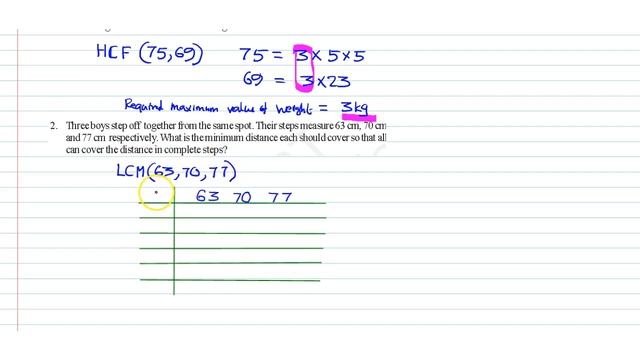 HCF (75,69) 75 = 3 × 5 × 5
69 = 3 × 23
Required maximum value of weight = 3kg
2. Three boys step off together from the same spot. Their steps measure 63 cm, 70 cm
and 77 cm respectively. What is the minimum distance each should cover so that all
can cover the distance in complete steps?
LCM(63,70,77)
63 70 77